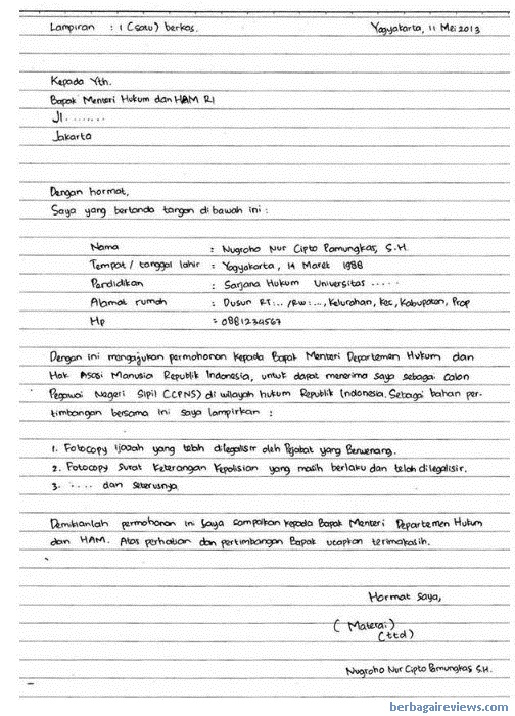 Lampiran : 1 (satu) berkas. Yogyakarta, 11 Mei 2013
Kepada Yth.
Bapak Menteri Hukum dan HAM RI
Jl.......
Jakarta
Dengan hormat,
Saya yang bertanda tangan di bawah ini :
Nama : Nugroho Nur Cipto Pamungkas, S.H.
Tempat / tanggal lahir : Yogyakarta, 14 Maret 1988
Pendidikan : Sarjana Hukum Universitas .....
Alamat rumah : Dusun RT:.../RW:..., Kelurahan, Kec, Kabupaten, Prop
Hp : 0881234567
Dengan ini mengajukan permohonan kepada Bapak Menteri Departemen Hukum dan
Hak Asasi Manusia Republik Indonesia, untuk dapat menerima saya sebagai Calon
Pegawai Negeri Sipil (CPNS) di wilayah hukum Republik Indonesia. Sebagai bahan per-
timbangan bersama ini saya lampirkan :
1. Fotocopy Ijazah yang telah dilegalisir oleh Pejabat yang Berwenang.
2. Fotocopy Surat Keterangan Kepolisian yang masih berlaku dan telah dilegalisir.
3. ..... dan seterusnya
Demikianlah permohonan ini saya sampaikan kepada Bapak Menteri Departemen Hukum
dan HAM. Atas perhatian dan pertimbangan Bapak ucapkan terimakasih.
Hormat Saya,
( Materai )
(ttd)
Nugroho Nur Cipto Pamungkas S.H.
berbagaireviews.com